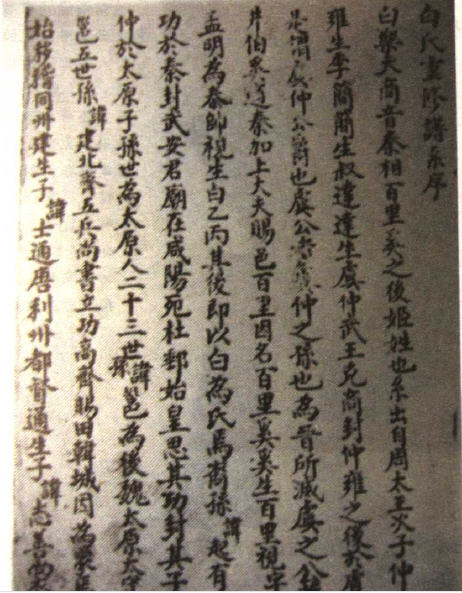 白氏重修譜系序
白與大商音秦相百里奚之後姬姓也系出自周太王次子仲
雍生季簡簡生叔達達生虞仲武王克商封仲雍之後於虞
仲公爵也虞公仲之孫也為晉所滅虞之公族
井伯奚適秦加上大夫賜邑百里因名百里奚奚生百里視字
孟明為秦帥視生白乙丙其後即以白為氏焉裔孫諱起有
功於秦封武安君廟在咸陽苑杜郵始皇思其功封其子
仲於太原子孫世為太原人二十三世孫諱邕為後魏太原太守
邕五世孫諱建北齊五兵尚書立功高齊賜田韓城因為
始移籍同州建生子諱士通唐利州都督通生子諱志善尚